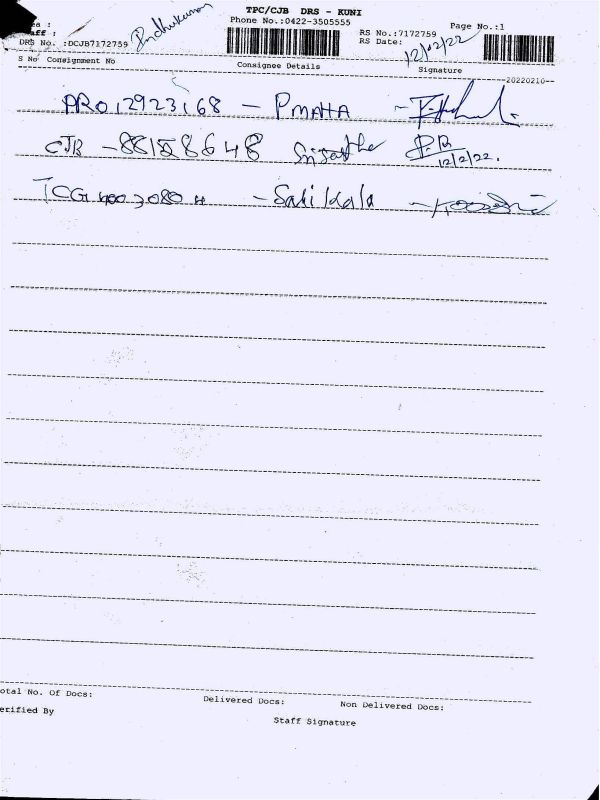 TPC/CJB DRS - KUNI
Phone No.:0422-3505555
Page No.:1
RS No.:7172759
DRS No. :DCJB7172759
RS Date: 12/02/22
S No Consignment No Consignee Details Signature
20220210
ARO12923168 - P MAHA
CJB - 88158648 12/2/22.
TCG - Sasikala
otal No. Of Docs: Delivered Docs: Non Delivered Docs:
erified By Staff Signature